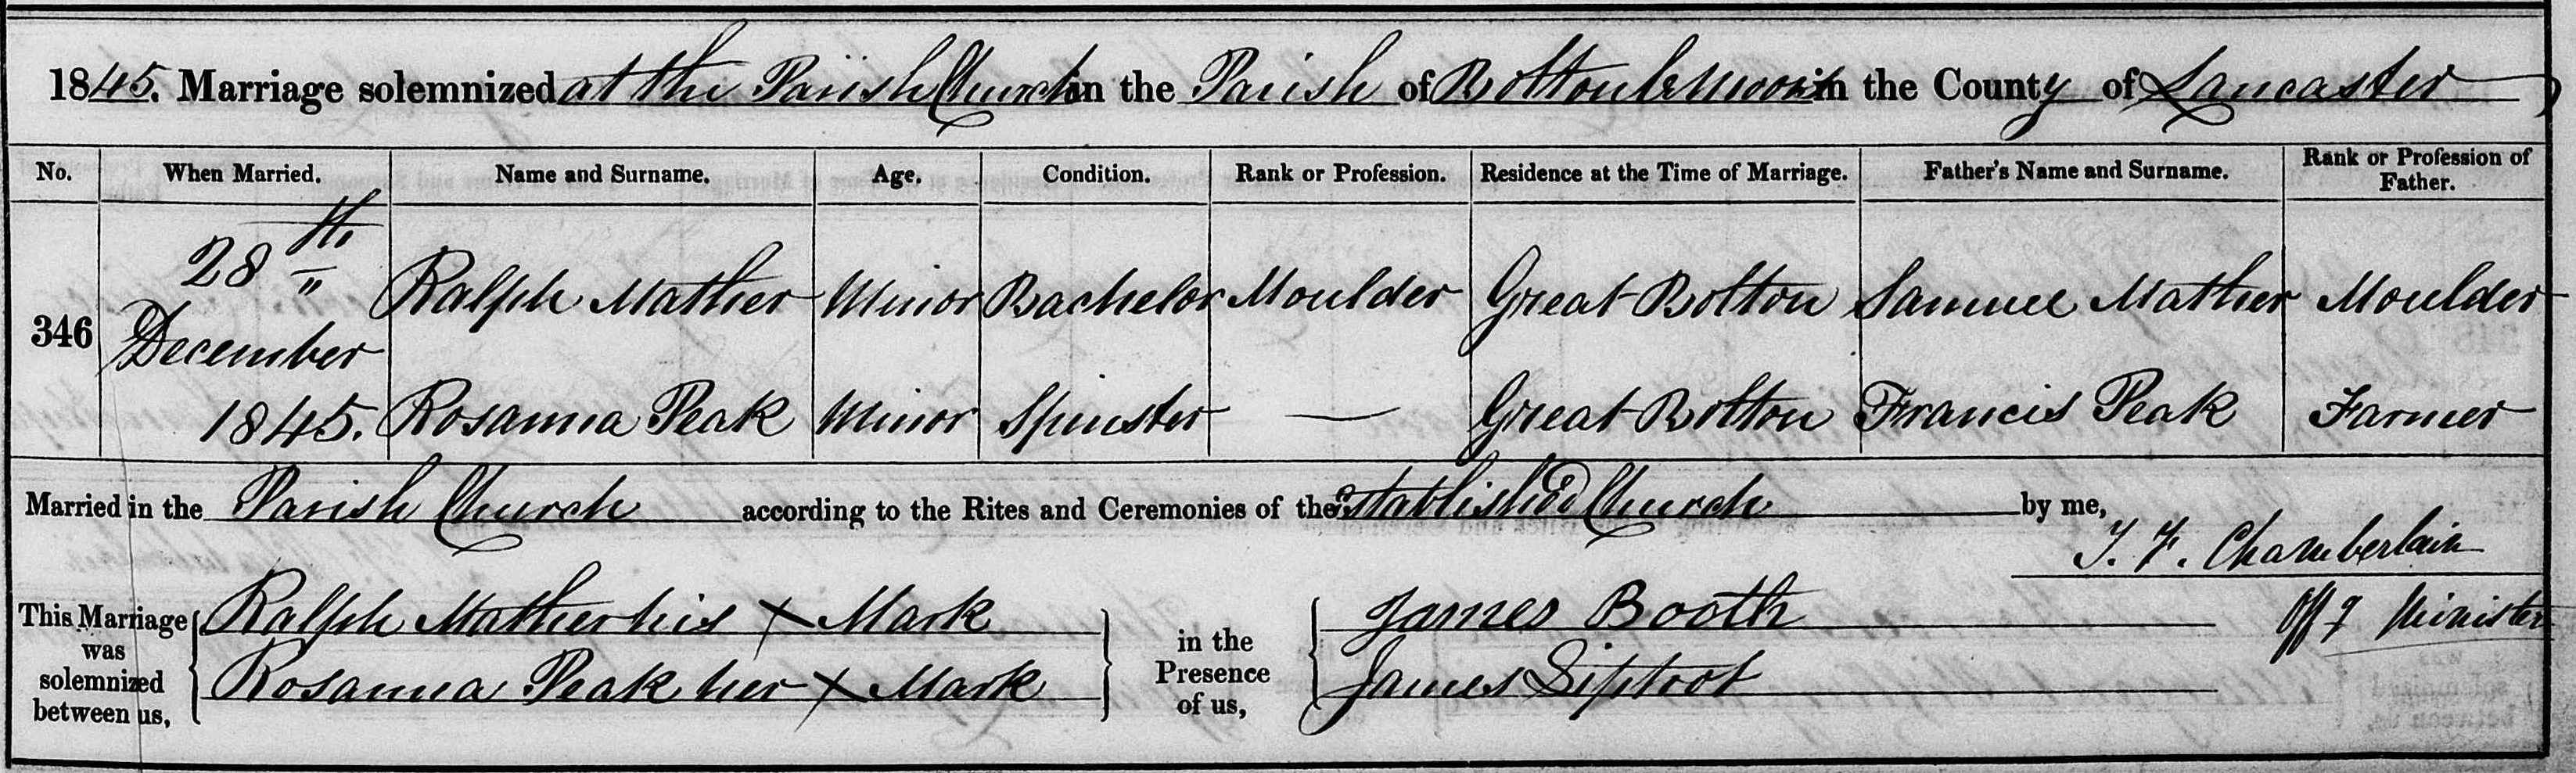 1845. Marriage solemnized at the Parish Church in the Parish of Bolton le Moors in the County of Lancaster
No. When Married. Name and Surname. Age. Condition. Rank or Profession. Residence at the Time of Marriage. Father's Name and Surname. Rank or Profession of Father.
346 28th December 1845. Ralph Mather Minor Bachelor Moulder Great Bolton Samuel Mather Moulder
Rosanna Peak Minor Spinster — Great Bolton Francis Peak Farmer
Married in the Parish Church according to the Rites and Ceremonies of the Established Church by me,
J. F. Chamberlain
Offg Minister
This Marriage was solemnized between us, Ralph Mather his X Mark
Rosanna Peak her X Mark
in the Presence of us, James Booth
James Liptrot